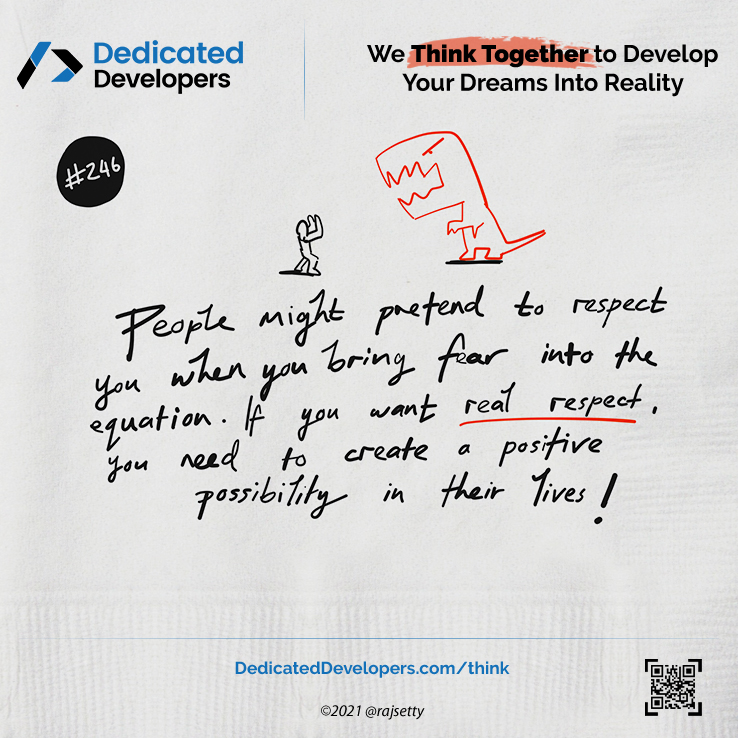 Dedicated
Developers
We Think Together to Develop
Your Dreams Into Reality
#246
People might pretend to respect
you when you bring fear into the
equation. If you want real respect,
you need to create a positive
possibility in their lives!
DedicatedDevelopers.com/think
©2021 @rajsetty